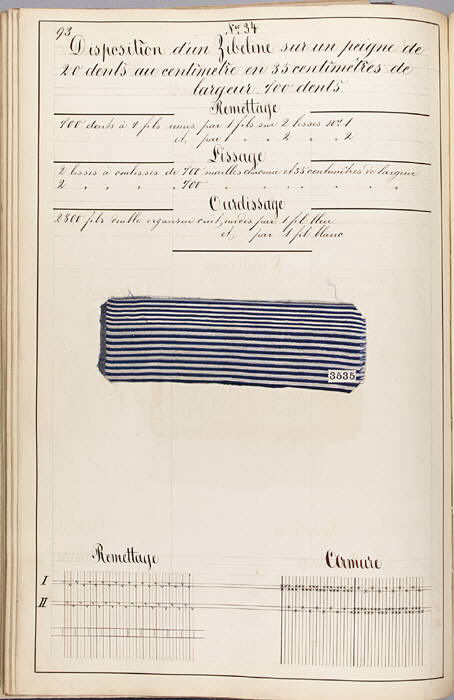 93
N° 34
Disposition d'un Zibeline sur un peigne de
20 dents au centimètre en 35 centimètres de
largeur 700 dents
Remettage
700 dents à 4 fils unies par 1 fil sur 2 lisses N° 1
et par 1 " " 2 " " 2
Lissage
2 lisses à coulisses de 700 mailles chacune et 35 centimètres de largeur
2 " " " 700 " " " " " "
Ourdissage
2800 fils double organsin cuit, par 1 fil bleu
et, par 1 fil blanc
3535
Remettage
Armure
I
II